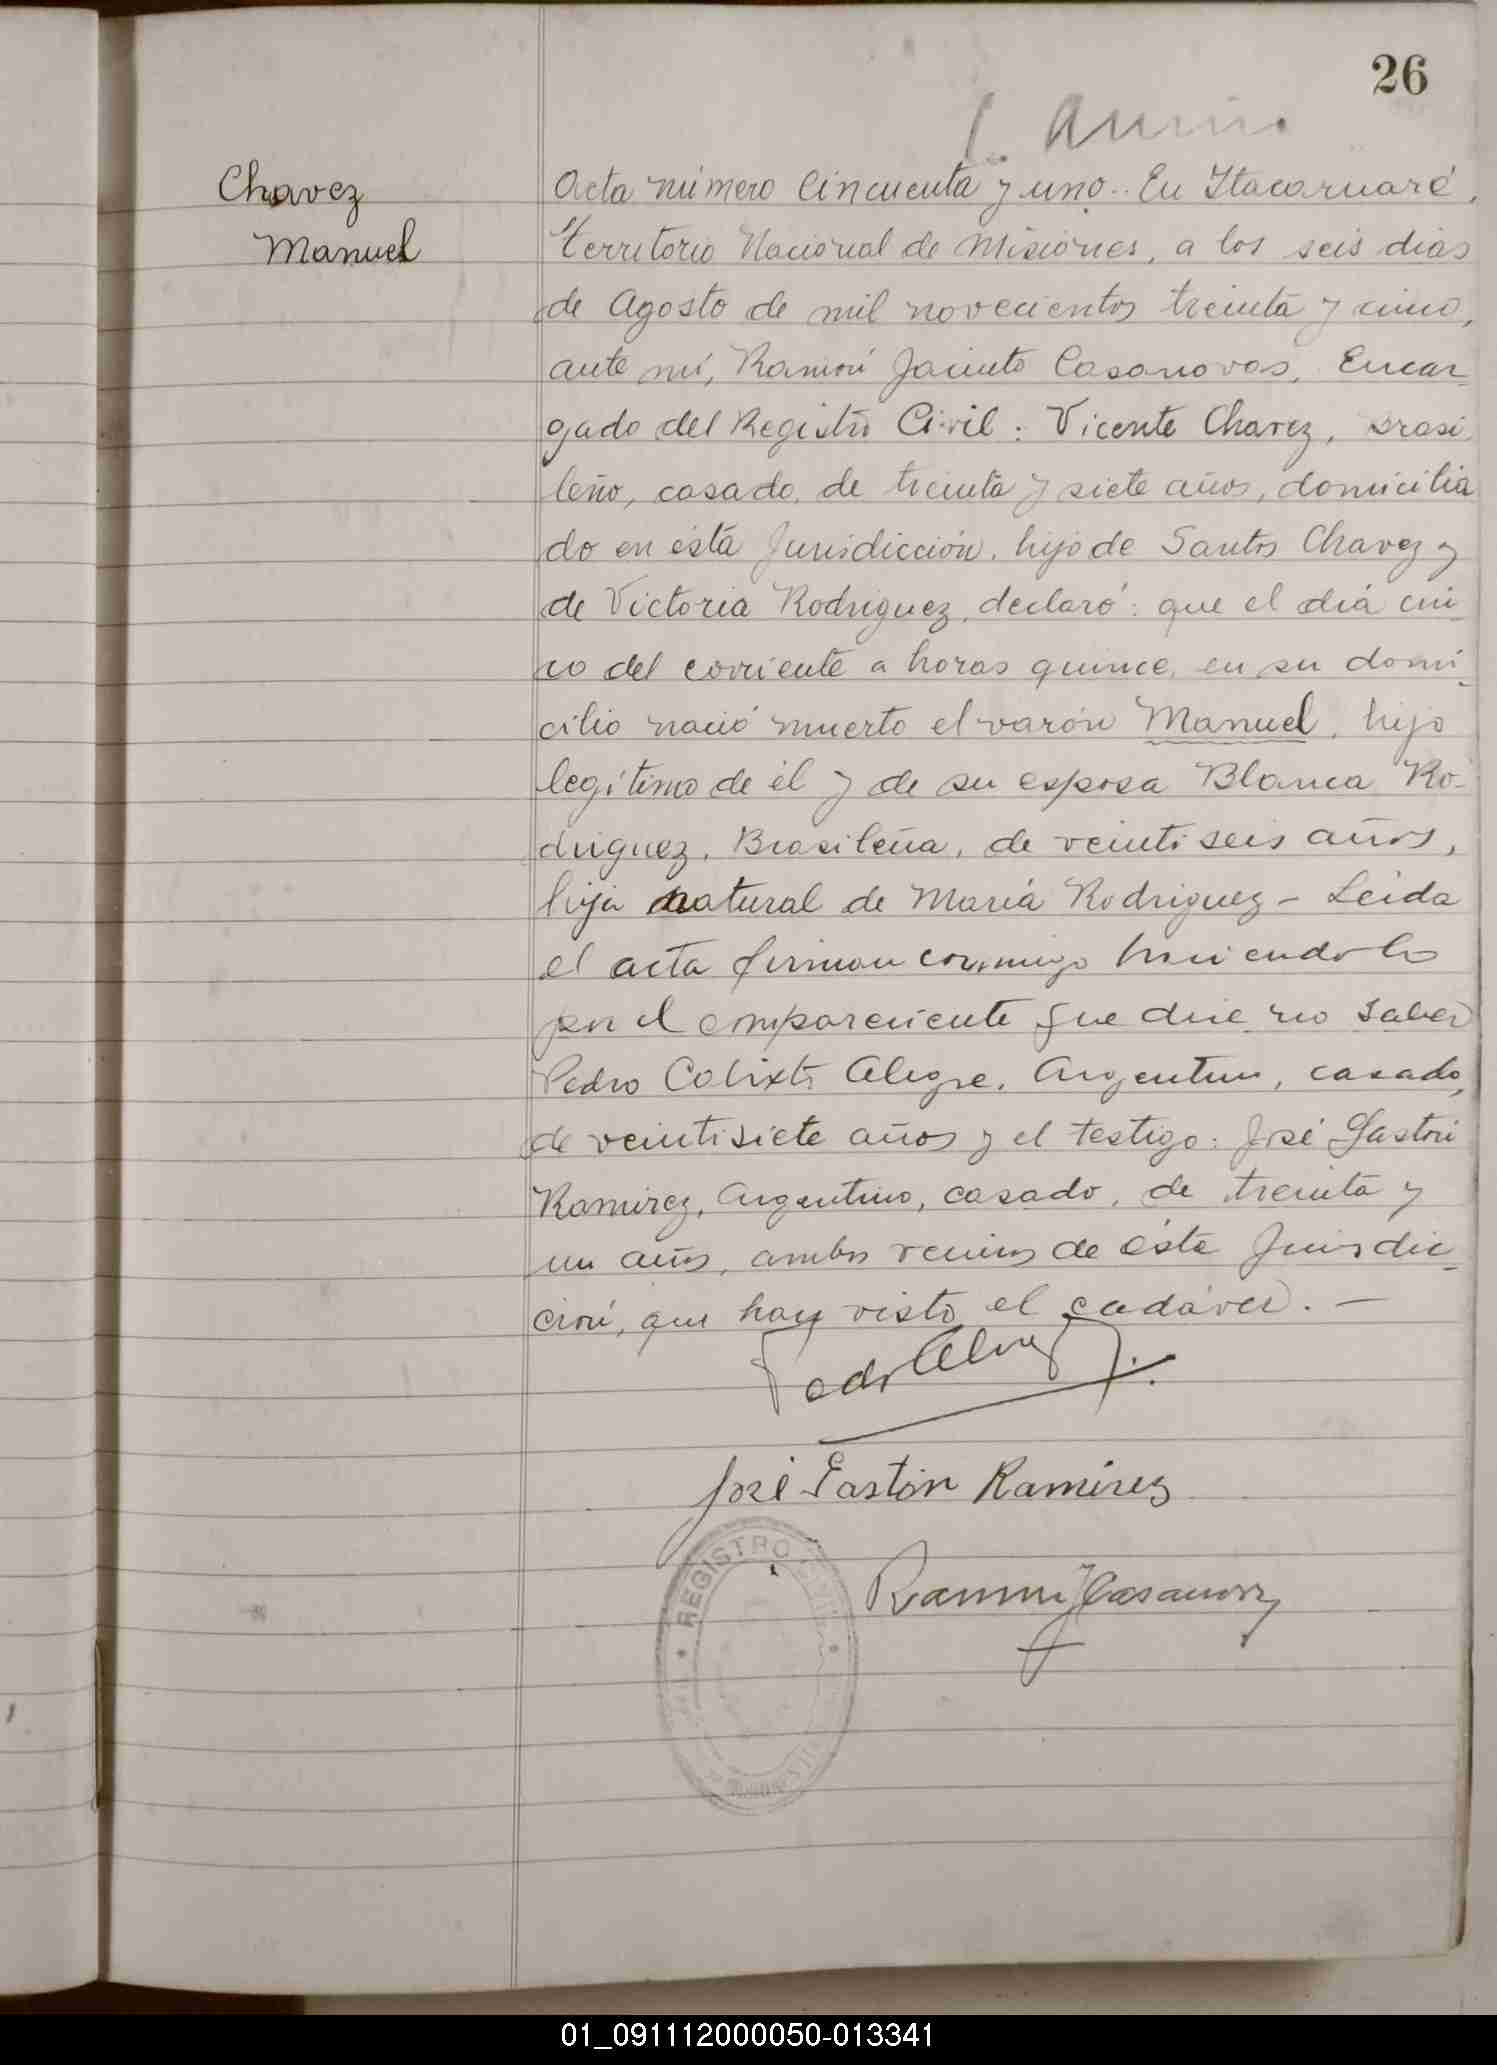 26
Chavez
Manuel
Acta número Cincuenta y uno.. En Itacaruaré,
territorio Nacional de Misiones, a los seis dias
de Agosto de mil novecientos treinta y cinco,
ante mí, Ramón Jacinto Casanovas, Encar-
gado del Registro Civil: Vicente Chavez, brasi
leño, casado, de treinta y siete años, domicilia
do en ésta Jurisdicción, hijo de Santos Chavez y
de Victoria Rodriguez, declaró: que el día cin-
co del corriente a horas quince, en su domi-
cilio nació muerto el varón Manuel, hijo
legítimo de él y de su esposa Blanca Ro-
driguez, Brasileña, de veintiseis años,
hija natural de María Rodriguez - Leida
el acta firman conmigo haciendolo
por el compareciente que dice no saber
Pedro Calixto Alegre, Argentino, casado,
de veintisiete años y el testigo: José Gastón
Ramirez, Argentino, casado, de treinta y
un años, ambos vecinos de ésta Jurisdic-
ción, que han visto el cadáver. —
José Gastón Ramirez
Ramón J Casanovas
REGISTRO CIVIL
01_091112000050-013341